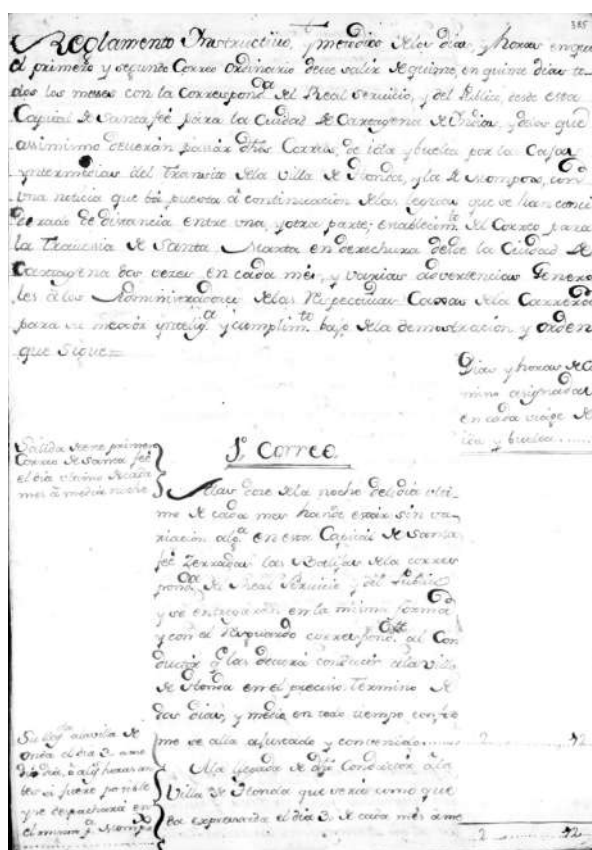 385
Reglamento Instructivo, y metodico de los dias, y horas en que
el primero y segundo Correo Ordinario deve salir de quince, en quince dias to-
dos los meses con la Correspond.a del Real Servicio, y del Publico, desde esta
Capital de Santa feé para la Ciudad de Cartagena de Indias, y dias que
assimismo deverán pasar dhos Correos, de ida y buelta por las Caxas
yntermedias del Transito de la Villa de Honda, y la de Mompox, con
una noticia que bá puesta á continuacion de las leguas que se han consi
derado de distancia entre una, y otra parte; establecim.to del Correo para
la Travesia de Santa Marta en derechura desde la Ciudad de
Cartagena dos veces en cada més, y varias advertencias Genera
les á los Administradores de las Respectivas Caxas de la Carrera
para su mexor yntelig.a y cumplim.to bajo de la demostracion y orden
que Sigue=
Dias y horas de Ca
mino asignadas
en cada viaje de
ida y buelta......
1.o Correo.
Salida de este primer
Correo de Santa feé
el dia ultimo de cada
mes á media noche
A las doze de la noche del dia ulti-
mo de cada mes han de estár sin va-
riacion alg.a en esta Capital de Santa
feé Zerradas las Balijas de la corres
pond.a del Real Servicio y del Publico
y se entregarán en la misma forma
y con el Resguardo correspond.te al Con
ductor q.e las deverá conducir á la Villa
de Honda en el preciso Termino de
dos dias, y medio en todo tiempo confor
me se alla ajustado y convenido...... 2 ...... 12
Su lleg.da á la villa de
Honda el dia 3. á me
dio dia, ó alg.s horas an
tes si fuere posible
y se despachará en
el mismo p.a Mompox
A la llegada de dho Conductor á la
Villa de Honda que será como que
da expresado el dia 3. de cada més á me
2 ...... 12